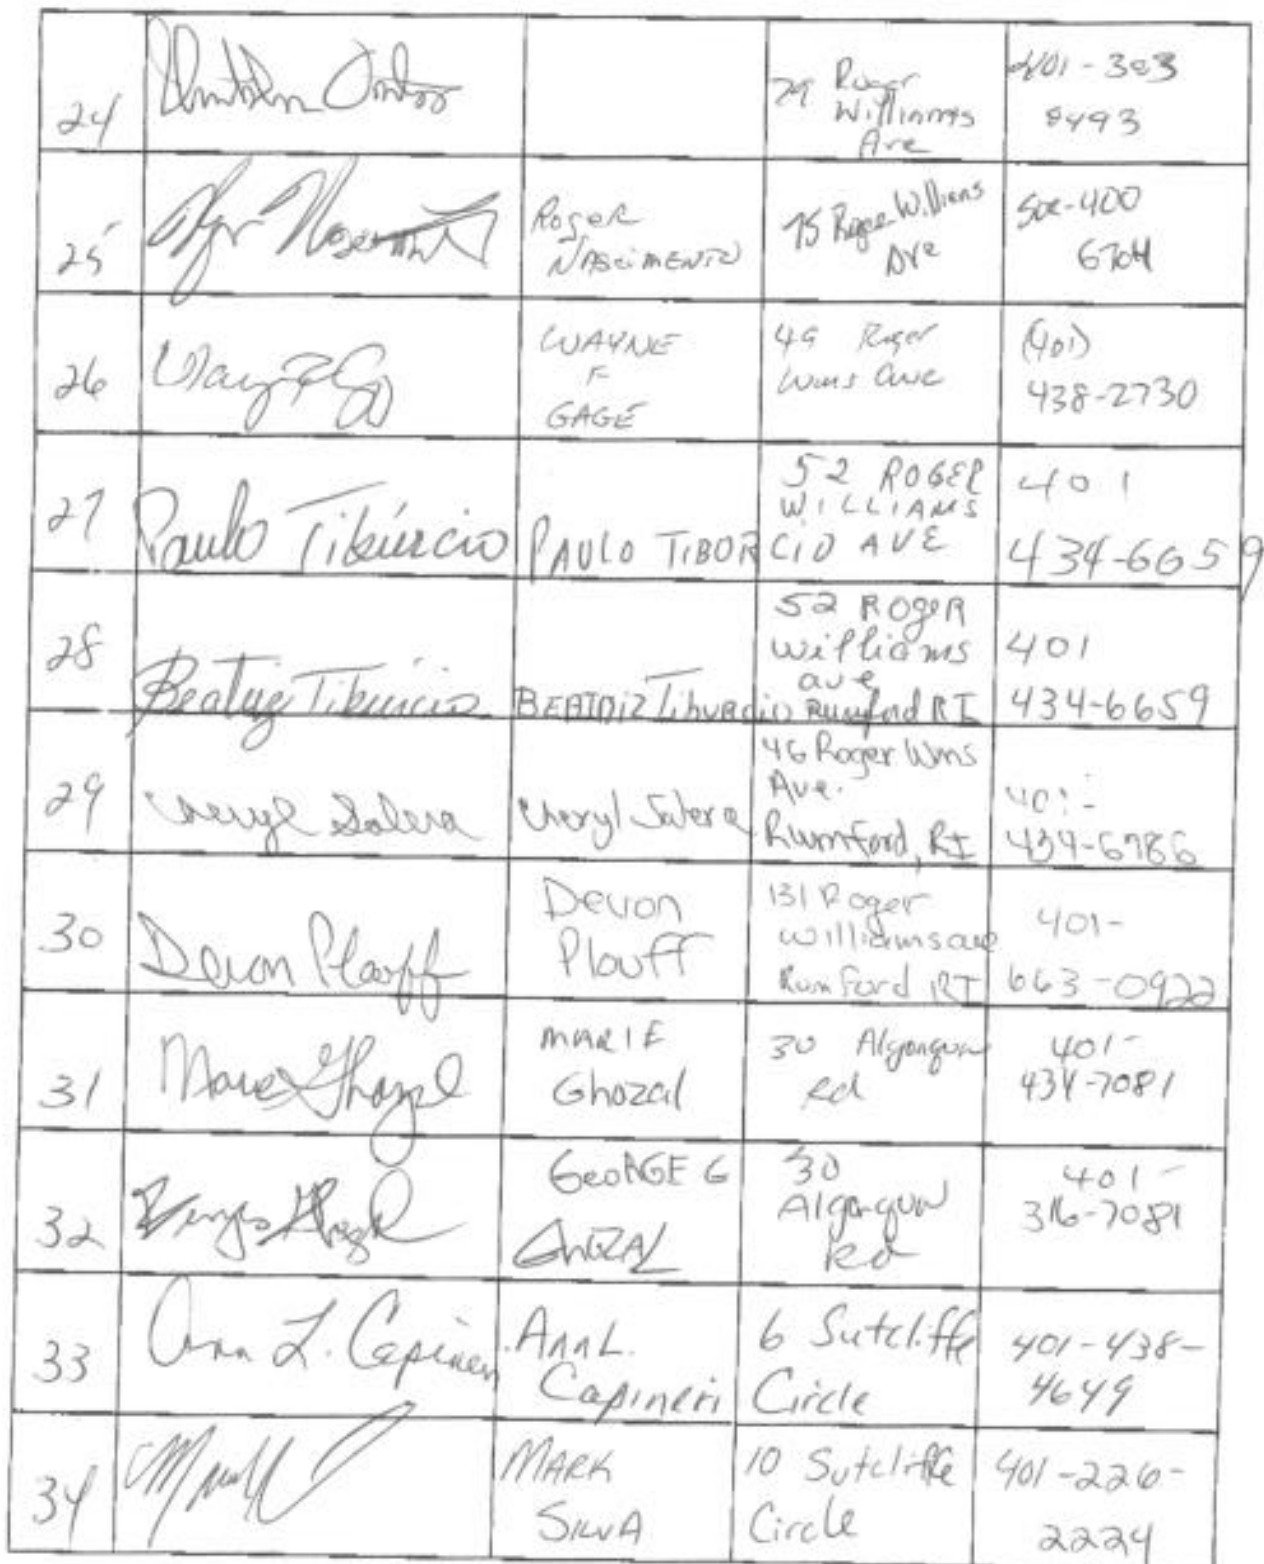 24
29 Roger
Williams
Ave
401-383
8493
25
Roger
NASCIMENTO
75 Roger Williams
Ave
508-400
6704
26
WAYNE
F
GAGE
49 Roger
Wms Ave
(401)
438-2730
27
Paulo Tibúrcio
PAULO TIBORCIO
52 ROGER
WILLIAMS
AVE
401
434-6659
28
Beatriz Tiburcio
BEATRIZ Tiburcio
52 ROGER
Williams
ave
Rumford RI
401
434-6659
29
Cheryl Salera
Cheryl Salera
46 Roger Wms
Ave.
Rumford, RI
401-
434-6786
30
Devon Plouff
Devon
Plouff
131 Roger
Williams ave
Rumford RI
401-
663-0922
31
Marie Ghazal
MARIE
Ghazal
30 Algonquin
Rd
401-
434-7081
32
George Ghazal
GeoRGE G
GhAZAL
30
Algonquin
Rd
401-
316-7081
33
Ann L. Capineri
Ann L.
Capineri
6 Sutcliffe
Circle
401-438-
4649
34
MARK
SILVA
10 Sutcliffe
Circle
401-226-
2224